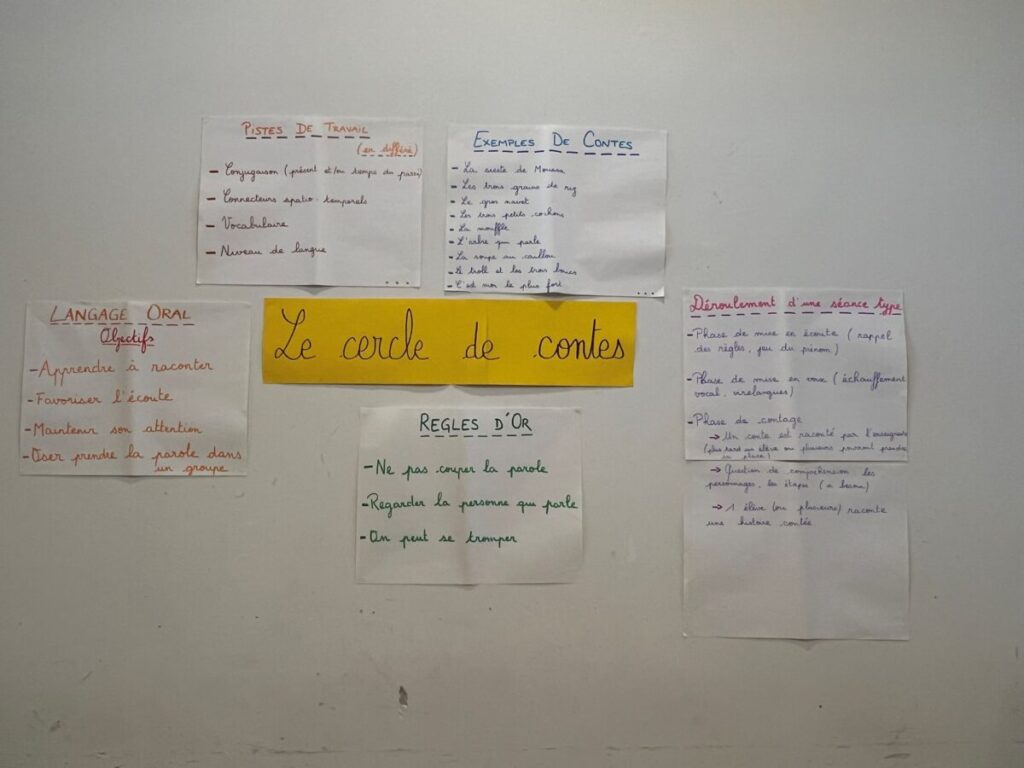 PISTES DE TRAVAIL
(en différé)
- Conjugaison (présent et/ou temps du passé)
- Connecteurs spatio-temporels
- Vocabulaire
- Niveau de langue
...
EXEMPLES DE CONTES
- La sieste de Moussa
- Les trois grains de riz
- Le gros navet
- Les trois petits cochons
- La moufle
- L'arbre qui parle
- La soupe au caillou
- Le troll et les trois boucs
- C'est moi le plus fort
...
LANGAGE ORAL
Objectifs
- Apprendre à raconter
- Favoriser l'écoute
- Maintenir son attention
- Oser prendre la parole dans
un groupe
Le cercle de contes
REGLES D'OR
- Ne pas couper la parole
- Regarder la personne qui parle
- On peut se tromper
Déroulement d'une séance type
- Phase de mise en écoute (rappel
des règles, jeu du prénom)
- Phase de mise en voix (échauffement
vocal, virelangues)
- Phase de contage
→ Un conte est raconté par l'enseignant
(plus tard un élève ou plusieurs pourront prendre
sa place)
→ Question de compréhension les
personnages, les étapes (si besoin)
→ 1 élève (ou plusieurs) raconte
une histoire contée